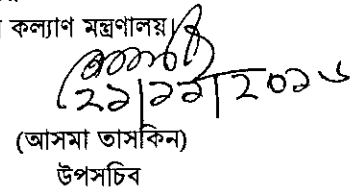 কল্যাণ মন্ত্রণালয়।
২১|১১|২০১৬
(আসমা তাসকিন)
উপসচিব